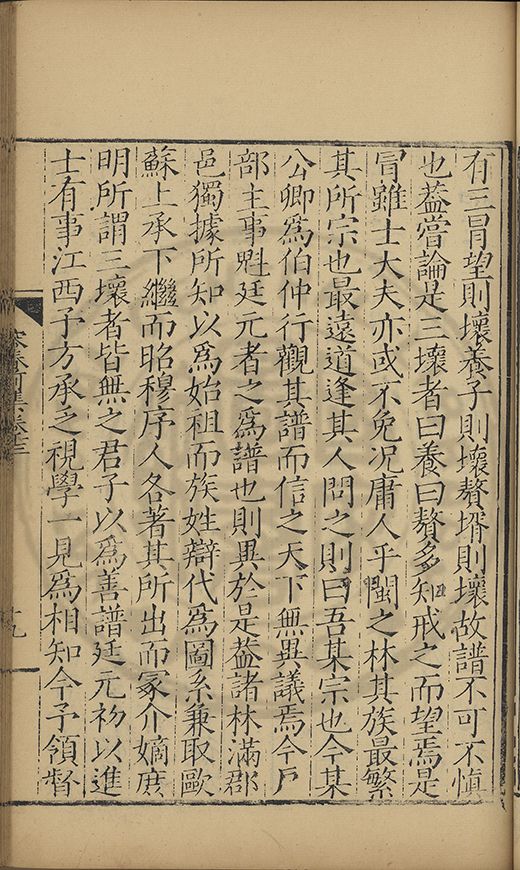 有三冐望則壞養子則壞贅壻則壞故譜不可不慎
也葢嘗論是三壞者曰養曰贅多知戒之而望焉是
冐雖士大夫亦或不免况庸人乎閩之林其族最繁
其所宗也最遠道逢其人問之則曰吾某宗也今某
公卿爲伯仲行觀其譜而信之天下無異議焉今戶
部主事魁廷元者之爲譜也則異於是葢諸林滿郡
邑獨據所知以爲始祖而族姓辯代爲圖系兼取歐
蘇上承下繼而昭穆序人各著其所出而冢介嫡庶
明所謂三壞者皆無之君子以爲善譜廷元初以進
士有事江西予方承乏視學一見爲相知今予領督